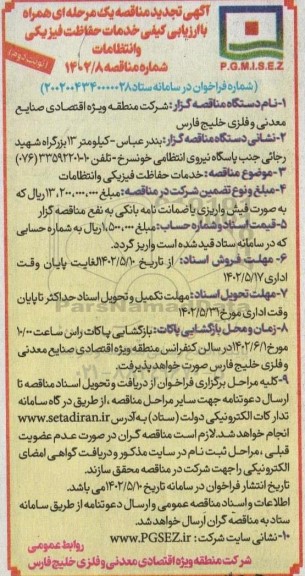 آگهی تجدید مناقصه یک مرحله ای همراه
با ارزیابی کیفی خدمات حفاظت فیزیکی
وانتظامات
شماره مناقصه ۱۴۰۲/۸
(نوبت دوم)
P.G.M.I.S.E.Z
(شماره فراخوان در سامانه ستاد ۲۰۰۲۰۰۴۳۴۰۰۰۰۰۲۸)
۱-نام دستگاه مناقصه گزار: شرکت منطقه ویژه اقتصادی صنایع
معدنی و فلزی خلیج فارس
۲-نشانی دستگاه مناقصه گزار: بندرعباس-کیلومتر ۱۳ بزرگراه شهید
رجائی جنب پاسگاه نیروی انتظامی خونسرخ-تلفن ۱۰-۳۳۵۹۲۲۰۱ (۰۷۶)
۳-موضوع مناقصه: خدمات حفاظت فیزیکی و انتظامات
۴-مبلغ و نوع تضمین شرکت در مناقصه: مبلغ ۱۳,۲۰۰,۰۰۰,۰۰۰ ریال که
به صورت فیش واریزی یا ضمانت نامه بانکی به نفع مناقصه گزار
۵-قیمت اسناد و شماره حساب: مبلغ ۱,۵۰۰,۰۰۰ ریال به شماره حسابی
که در سامانه ستاد قید شده است واریز گردد.
۶- مهلت فروش اسناد: از تاریخ ۱۴۰۲/۵/۱۰ لغایت پایان وقت
اداری ۱۴۰۲/۵/۱۷
۷-مهلت تحویل اسناد: مهلت تکمیل و تحویل اسناد حداکثر تا پایان
وقت اداری مورخ ۱۴۰۲/۵/۳۱
۸-زمان و محل بازگشایی پاکات: بازگشایی پاکات راس ساعت ۱۰/۰۰
مورخ ۱۴۰۲/۶/۱ در سالن کنفرانس منطقه ویژه اقتصادی صنایع معدنی
و فلزی خلیج فارس صورت خواهد پذیرفت.
۹-کلیه مراحل برگزاری فراخوان از دریافت و تحویل اسناد مناقصه تا
ارسال دعوتنامه جهت سایر مراحل مناقصه، از طریق درگاه سامانه
تدارکات الکترونیکی دولت (ستاد) به آدرس www.setadiran.ir
انجام خواهد شد. لازم است مناقصه گران در صورت عدم عضویت
قبلی، مراحل ثبت نام در سایت مذکور و دریافت گواهی امضای
الکترونیکی را جهت شرکت در مناقصه محقق سازند.
تاریخ انتشار فراخوان در سامانه تاریخ ۱۴۰۲/۵/۱۰ می باشد.
اطلاعات و اسناد مناقصه عمومی و ارسال دعوتنامه از طریق سامانه
ستاد به مناقصه گران ارسال خواهد شد.
۱۰-نشانی سایت شرکت: www.PGSEZ.ir
روابط عمومی
شرکت منطقه ویژه اقتصادی معدنی و فلزی خلیج فارس